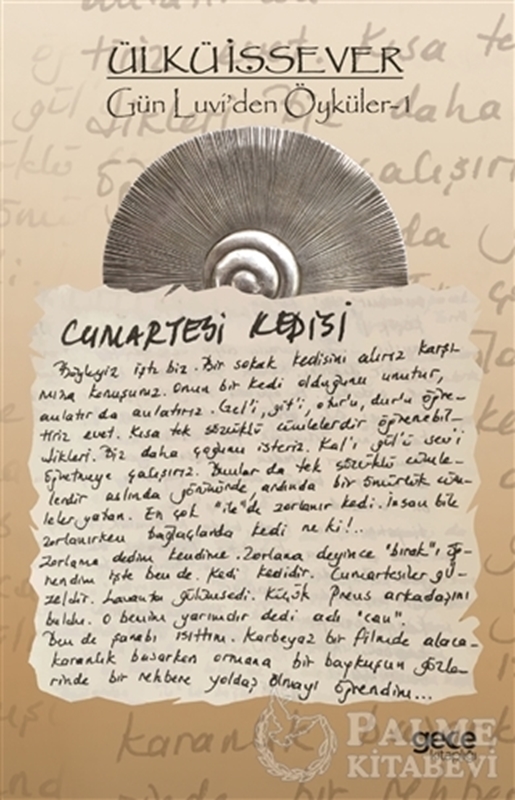 ÜLKÜ İSSEVER
Gün Luvi'den Öyküler-1
CUMARTESİ KEDİSİ
Böyleyiz işte biz. Bir sokak kedisini alırız karşı-
mıza konuşuruz. Onun bir kedi olduğunu unutur,
anlatır da anlatırız. Gel'i, git'i, otur'u, dur'u öğre-
tiriz evet. Kısa tek sözcüklü cümlelerdir öğrenebil-
dikleri. Biz daha çoğunu isteriz. Kal'ı gül'ü sev'i
öğretmeye çalışırız. Bunlar da tek sözcüklü cümle-
lerdir aslında görünürde, ardında bir ömürlük cüm-
leler yatan. En çok "ile"de zorlanır kedi. İnsan bile
zorlanırken bağlaçlarda kedi ne ki!..
Zorlama dedim kendime. Zorlama deyince "bırak"ı öğ-
rendim işte ben de. Kedi kedidir. Cumartesiler gü-
zeldir. Lavanta gülümsedi. Küçük Prens arkadaşını
buldu. O benim yarımdır dedi adı "can".
Ben de şarabı ısıttım. Karbeyaz bir filmde alaca-
karanlık basarken ormana bir baykuşun gözle-
rinde bir rehbere yoldaş olmayı öğrendim...
PALME
KİTABEVİ
gece
kitaplığı